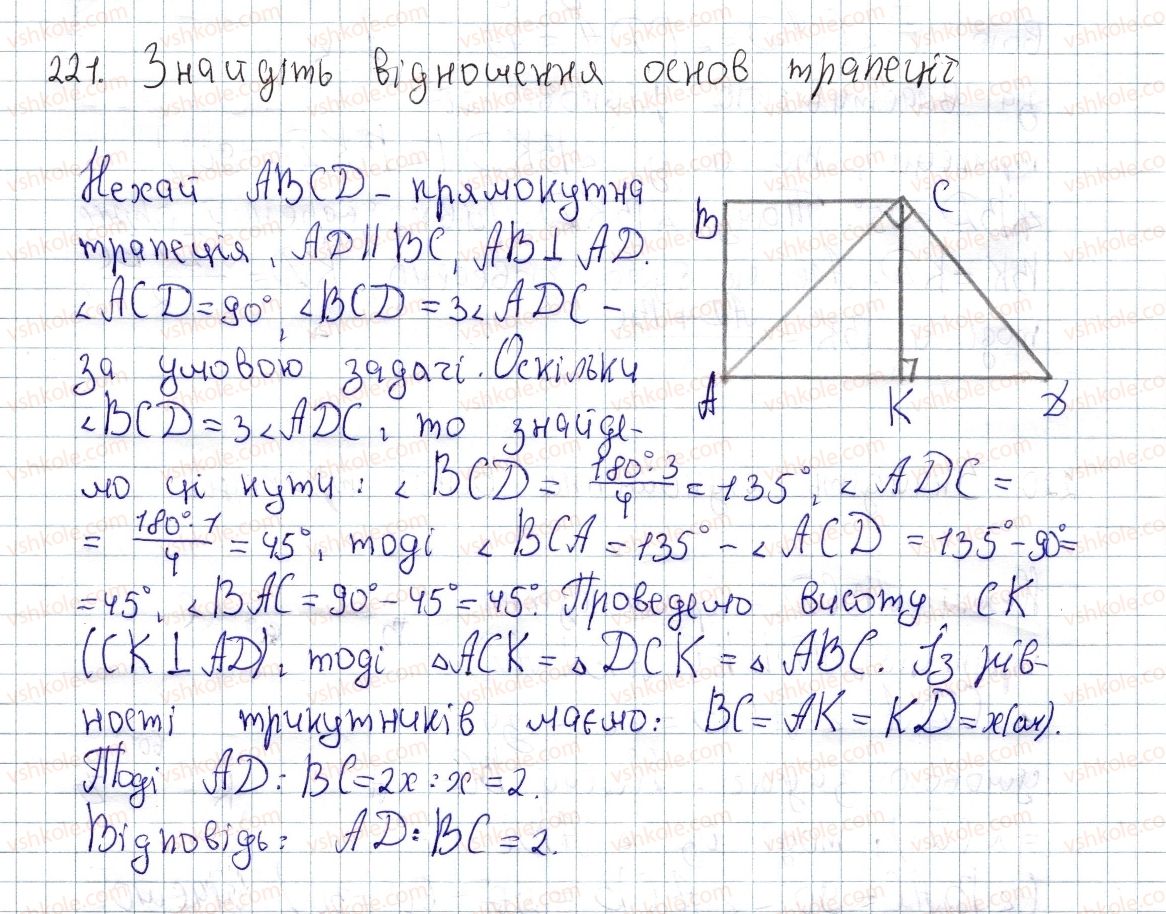 221. Знайдіть відношення основ трапеції
Нехай ABCD - прямокутна
трапеція, AD || BC, AB ⊥ AD.
∠ACD = 90°, ∠BCD = 3∠ADC -
за умовою задачі. Оскільки
∠BCD = 3∠ADC, то знайде-
мо ці кути: ∠BCD = 180°·3/4 = 135°, ∠ADC =
= 180°·1/4 = 45°, тоді ∠BCA = 135° - ∠ACD = 135° - 90° =
= 45°, ∠BAC = 90° - 45° = 45°. Проведемо висоту CK
(CK ⊥ AD), тоді △ACK = △DCK = △ABC. Із рів-
ності трикутників маємо: BC = AK = KD = x(см).
Тоді AD : BC = 2x : x = 2.
Відповідь: AD : BC = 2.
B
C
A
K
D
vshkole.com